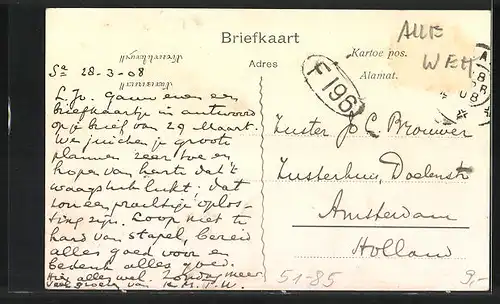 Briefkaart
Kartoe pos.
Adres
Alamat.
AUE
WEH
F196
Sa 28-3-08
L. Jo. gauw even een
briefkaartje in antwoord
op je brief van 29 Maart.
We juichen je groote
plannen zeer toe en
hopen van harte dat 't
waagstuk lukt: dat
zou een prachtige oplos-
sing zijn. Loop niet te
hard van stapel, bereid
alles goed voor en
bedenk alles goed.
Hier alles wel. Zondag meer.
Veel groeten van
Zuster J. C. Brouwer
Zusterhuis, Doelenstr
Amsterdam
Holland
51-85
9,-